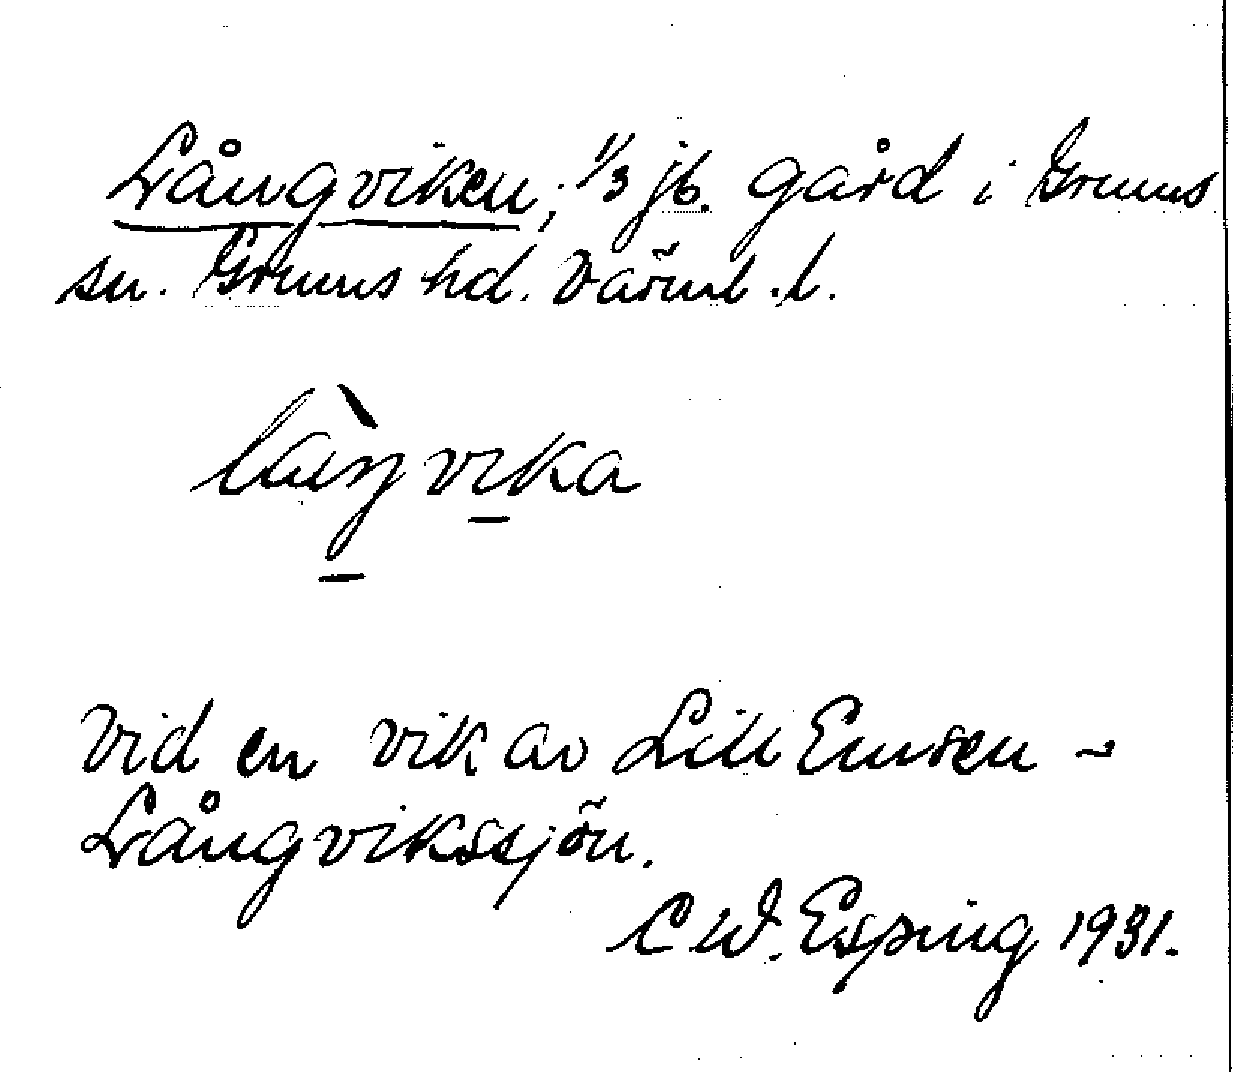 Långviken, 1/3 jb. gård i Grums
sn. Grums hd. Värml. l.
làŋvika
Vid en vik av Lill Emsen -
Långvikssjön.
C W. Esping 1931.